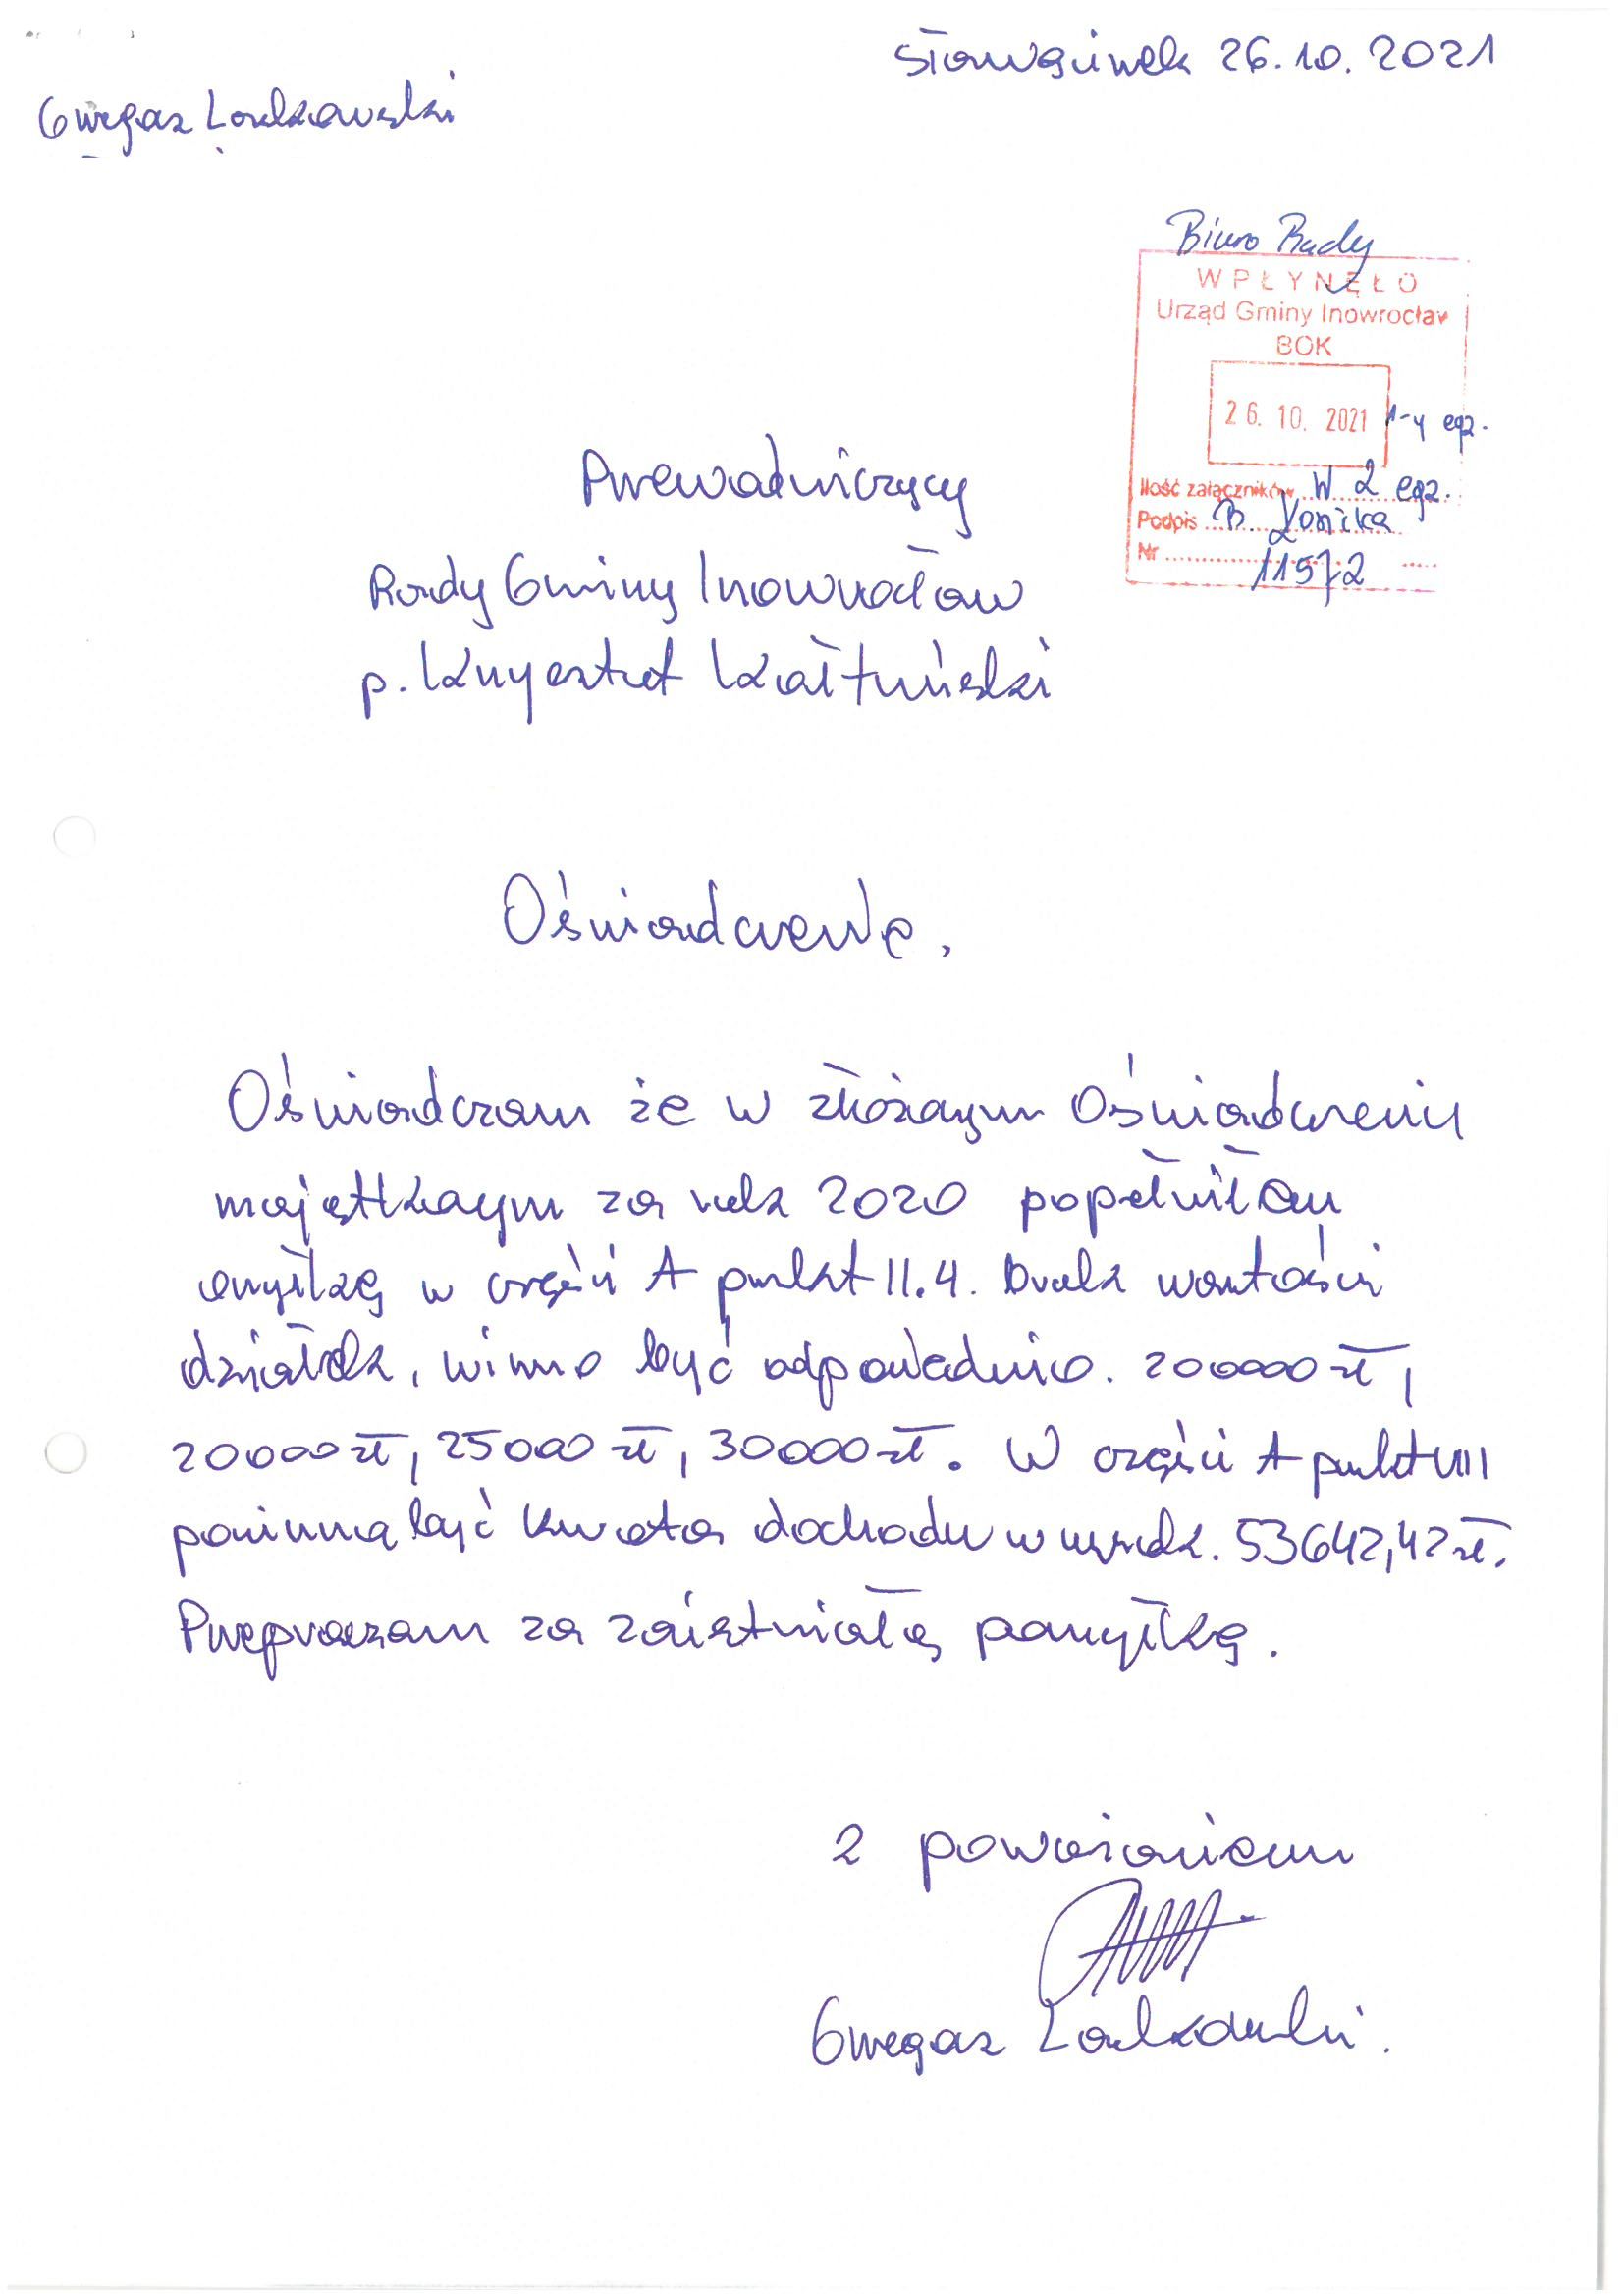 Sławęcinek 26.10.2021
Grzegorz Londkowski
Biuro Rady
WPŁYNĘŁO
Urząd Gminy Inowrocław
BOK
26. 10. 2021 1-y egz.
Ilość załączników W 2 egz.
Podpis B.
Nr 11572
Przewodniczący
Rady Gminy Inowrocław
p. Krzysztof Kołtuński
Oświadczenie.
Oświadczam że w złożonym Oświadczeniu
majątkowym za rok 2020 popełniłem
omyłkę w części A punkt II.4. brak wartości
działek, winno być odpowiednio. 200000 zł,
20000 zł, 25000 zł, 30000 zł. W części A punkt VIII
powinna być kwota dochodu w wysok. 53642,42 zł.
Przepraszam za zaistniałą pomyłkę.
Z poważaniem
Grzegorz Londkowski.